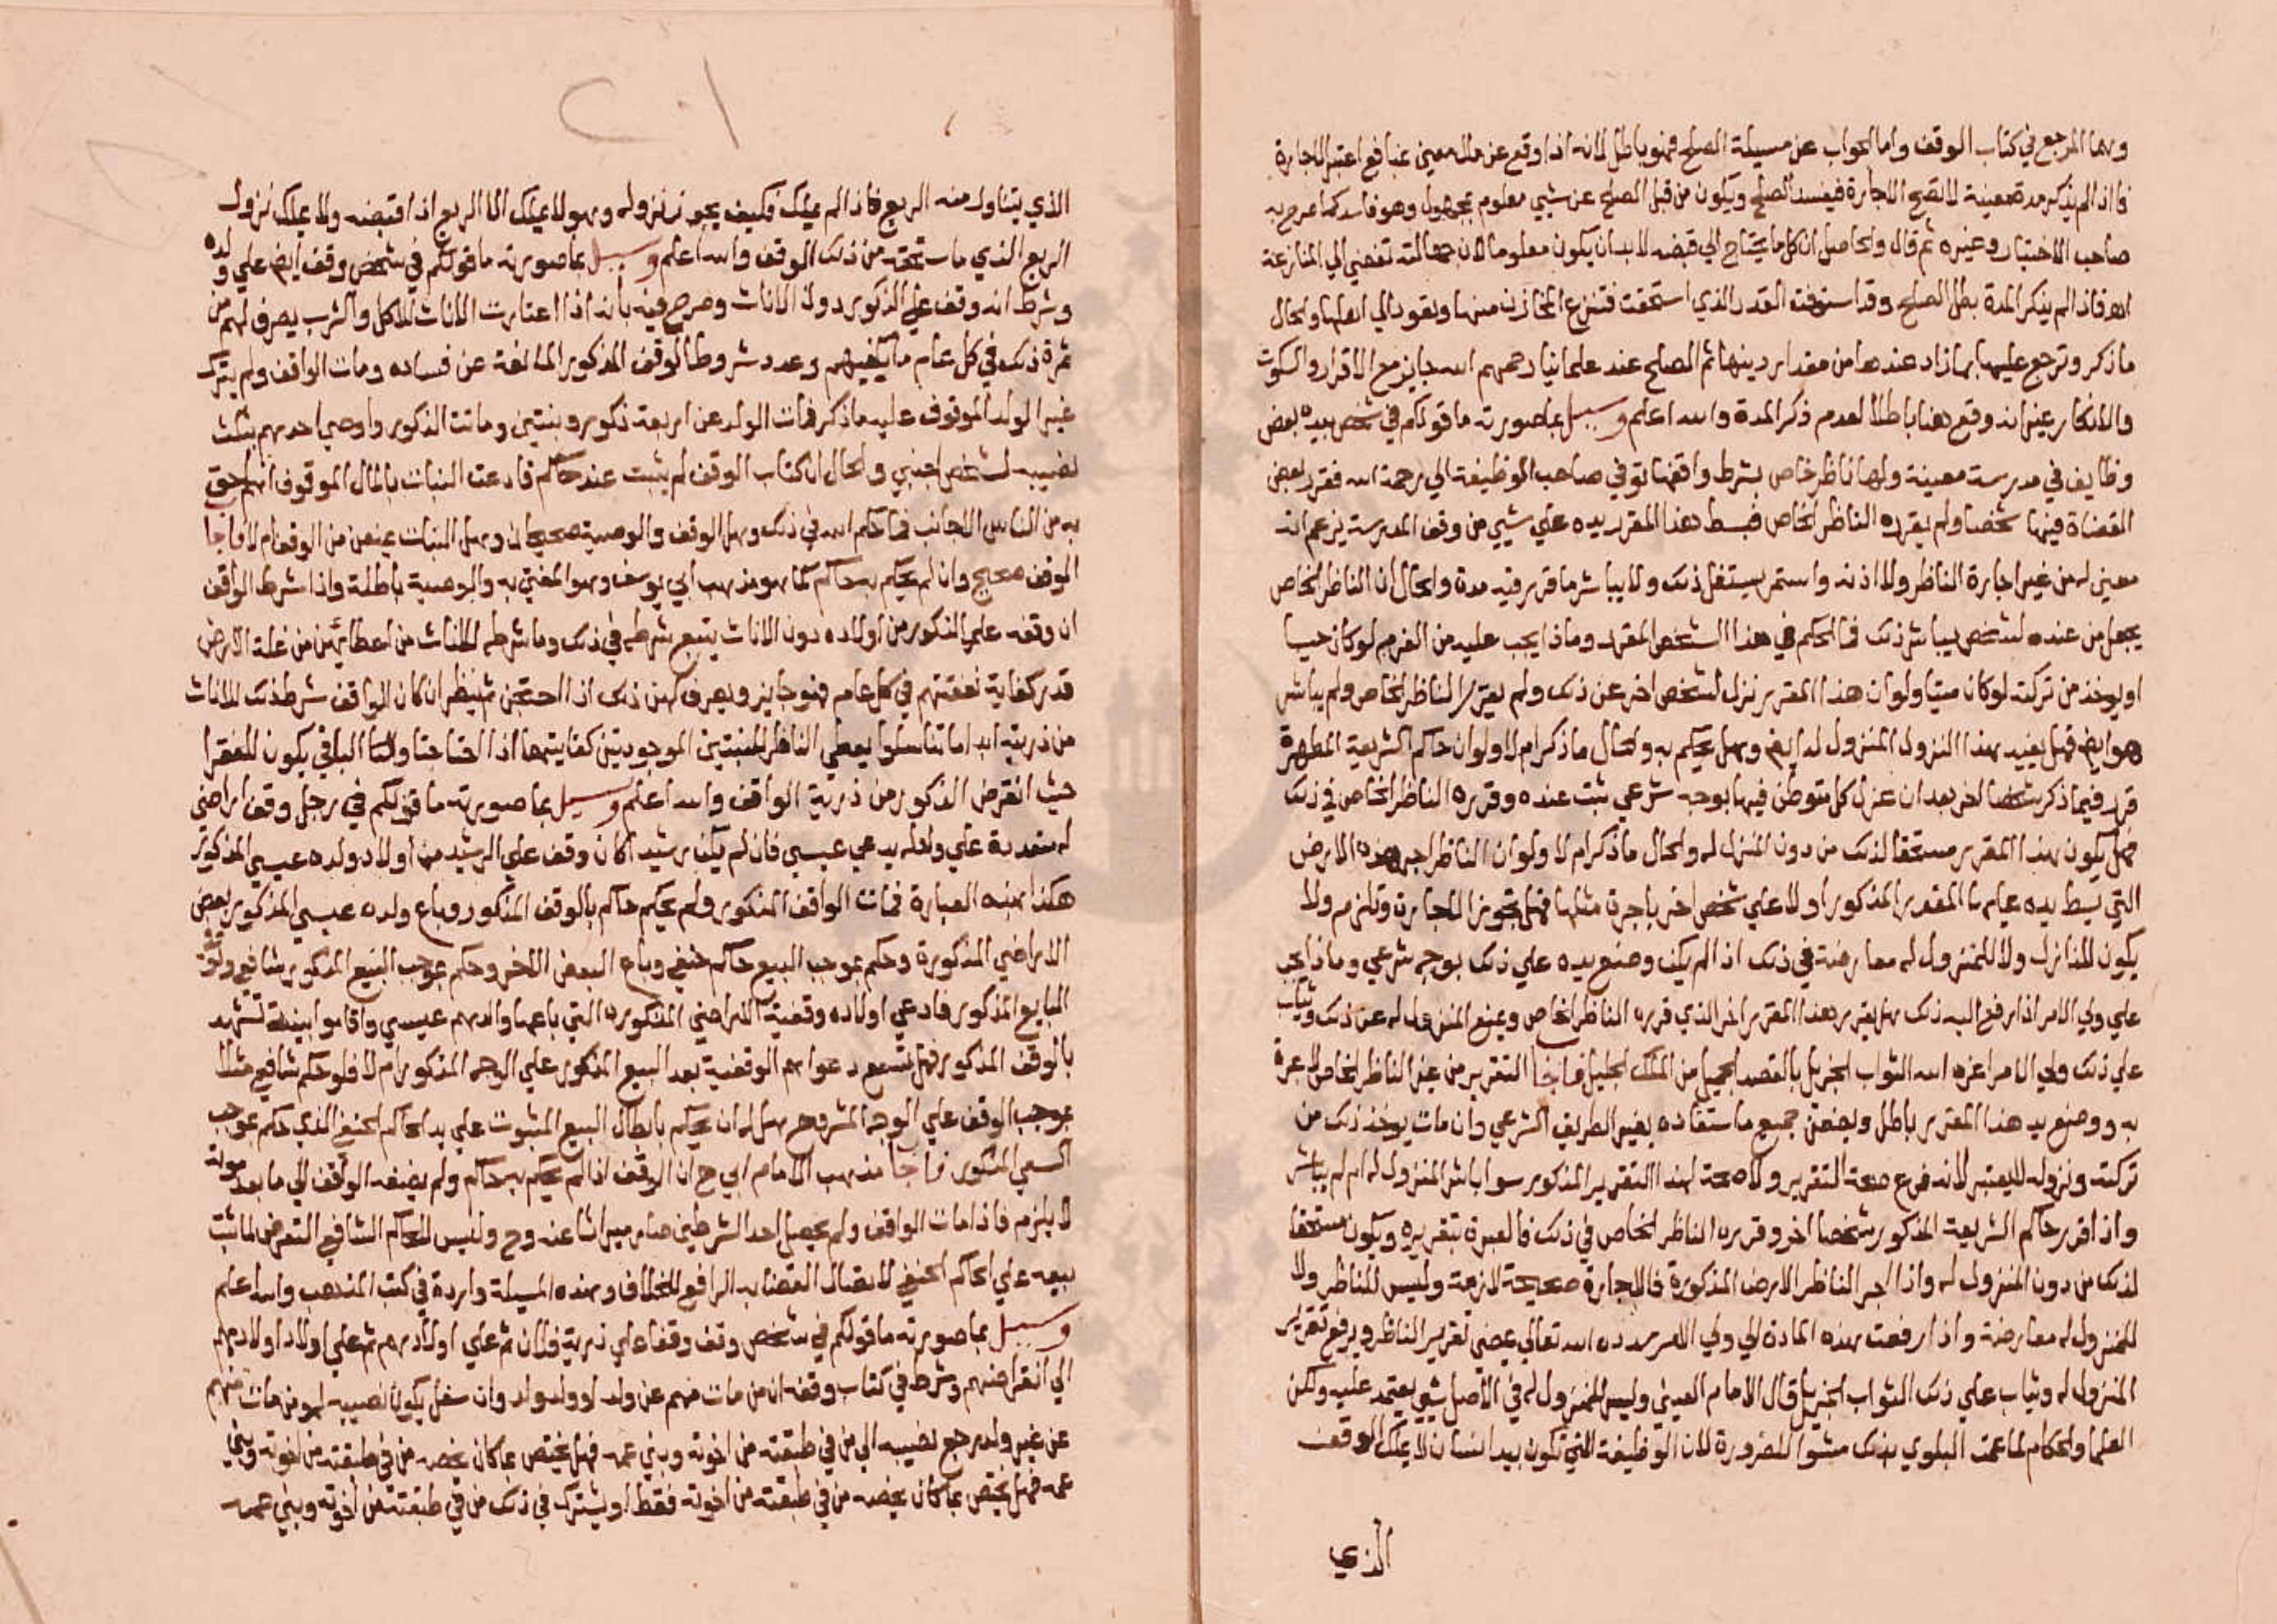 وهما المرجع في كتاب الوقف واما الجواب عن مسيلة الصلح فهو باطل لانه اذا وقع عن مال معين بمنافع اعتبر الاجارة
فاذا لم يذكر مدة معينة لا تصح الاجارة فيفسد الصلح ويكون من قبل الصلح عن شيي معلوم بمجهول وهو فاسد كما صرح به
صاحب الاختيار وغيره ثم قال والحاصل ان كل ما يحتاج الي قبضه لا بد ان يكون معلوما لان جهالته تفضي الي المنازعة
اه فاذا لم يذكر المدة بطل الصلح وقد استوفت القدر الذي استحقت فتنزع المخازن منها وتعود الي اهلها والحال
ما ذكر وترجع عليها بما زاد عندها من مقدار دينها ثم الصلح عند علمائنا رحمهم الله جايز مع الاقرار والسكوت
والانكار غير انه وقع هنا باطلا لعدم ذكر المدة والله اعلم وسيل بما صورته ما قولكم في شخص بيده بعض
وظايف في مدرسة معينة ولها ناظر خاص بشرط واقفها توفي صاحب الوظيفة الي رحمة الله فقرر بعض
القضاة فيها شخصا ولم يقرره الناظر الخاص فبسط هذا المقرر يده علي شيي من وقف المدرسة يزعم انه
معين له من غير اجارة الناظر ولا اذنه واستمر يستغل ذلك ولا يباشر ما قرر فيه مدة والحال ان الناظر الخاص
يجعل من عنده لشخص يباشر ذلك فما الحكم في هذا الشخص المقرر وماذا يجب عليه من الغرم لو كان حيا
او يوخذ من تركته لو كان ميتا ولو ان هذا المقرر نزل لشخص اخر عن ذلك ولم يقرر الناظر الخاص ولم يباشر
هو ايضا فهل يفيد هذا النزول المنزول له ايضا وهل يحكم به والحال ما ذكر ام لا ولو ان حاكم الشريعة المطهرة
قرر فيما ذكر شخصا اخر بعد ان عزل كل متوطن فيها بوجه شرعي ثبت عنده وقرره الناظر الخاص في ذلك
فهل يكون هذا المقرر مستحقا لذلك من دون المنزل له والحال ما ذكر ام لا ولو ان الناظر اجر هذه الارض
التي بسط يده عليها المقرر المذكور اولا علي شخص اخر باجرة مثلها فهل تجوز الاجارة وتلزم ولا
يكون للنازل ولا للمنزول له معارضة في ذلك اذ لم يكن وضع يده علي ذلك بوجه شرعي وماذا يجب
علي ولي الامر اذا رفع اليه ذلك هل يقرر هذا المقرر اخر الذي قرره الناظر الخاص ويمنع المنزول له عن ذلك ويثاب
علي ذلك ولي الامر اعزه الله الثواب الجزيل بالقصد الجميل من الملك الجليل فاجاب التقرير من غير الناظر الخاص لا عبرة
به ووضع يد هذا المقرر باطل ويضمن جميع ما استفاده بغير الطريق الشرعي وان مات يوخذ ذلك من
تركته ونزوله لا يعتبر لانه فرع صحة التقرير ولا صحة لهذا التقرير المذكور سوا باشر المنزول له ام لم يباشر
واذا قرر حاكم الشريعة المذكور شخصا اخر وقرره الناظر الخاص في ذلك فالعبرة بتقريره ويكون مستحقا
لذلك من دون المنزول له واذا اجر الناظر الارض المذكورة فالاجارة صحيحة لازمة وليس للناظر ولا
للمنزول له معارضة واذا رفعت هذه المادة الي ولي الامر سدده الله تعالي يمضي تقرير الناظر ويرفع تقرير
المنزول له ويثاب علي ذلك الثواب الجزيل قال الامام العيني وليس للمنزول له في الاصل شي يعتمد عليه ولكن
العلما والحكام لما عمت البلوي بذلك مشوا للضرورة لان الوظيفة التي تكون بيد انسان لا يملك الوقف
الذي
الذي يتناول منه الريع فاذا لم يملك فكيف يجوز نزوله وهو لا يملك الا الريع اذا قبضه ولا يملك نزول
الريع الذي ما استحقه من ذلك الوقف والله اعلم وسيل بما صورته ما قولكم في شخص وقف ايضا علي ولده
وشرط انه وقف علي الذكور دون الاناث وصرح فيه بانه اذا اعتازت الاناث للاكل والشرب يصرف لهم من
ثمرة ذلك في كل عام ما يكفيهم وعدد شروط الوقف المذكور المانعة عن فساده ومات الواقف ولم يترك
غير الولد الموقوف عليه ما ذكر فمات الولد عن اربعة ذكور وبنتين وماتت الذكور واوصي احدهم بثلث
نصيبه لشخص اجنبي والحال ان كتاب الوقف لم يثبت عند حاكم فادعت البنات بالمال الموقوف انهم احق
به من الناس الاجانب فما حكم الله في ذلك وهل الوقف والوصية صحيحان وهل البنات يمنعن من الوقف ام لا فاجاب
الوقف صحيح وان لم يحكم به حاكم كما هو مذهب ابي يوسف وهو المفتي به والوصية باطلة واذا شرط الواقف
ان وقفه علي الذكور من اولاده دون الاناث يتبع شرطه في ذلك وما شرطه للاناث من اعطايهن من غلة الارض
قدر كفاية نفقتهم في كل عام فهو جايز ويصرف لهن ذلك اذا احتجن ثم ينظر ان كان الواقف شرط ذلك للاناث
من ذريته ابدا ما تناسلوا يعطي الناظر للبنتين الموجودتين كفايتهما اذا احتاجتا والباقي يكون للفقرا
حيث انقرض الذكور من ذرية الواقف والله اعلم وسيل بما صورته ما قولكم في رجل وقف اراضي
له متعددة علي ولد له يدعي عيسي فان لم يكن رشيدا كان وقف علي الرشيد من اولاد ولده عيسي المذكور
هكذا بهذه العبارة فمات الواقف المذكور ولم يحكم حاكم بالوقف المذكور وباع ولده عيسي المذكور بعض
الاراضي المذكورة وحكم بموجب البيع حاكم حنفي وباع البعض الاخر وحكم بموجب البيع المذكور شافعي وتوفي
البايع المذكور فادعي اولاده وقفية الاراضي المذكوره التي باعها والدهم عيسي واقاموا بينة تشهد
بالوقف المذكور فهل تسمع دعواهم الوقفية بعد البيع المذكور علي الوجه المذكور ام لا فلو حكم شافعي مثلا
بموجب الوقف علي الوجه المشروح هل له ان يحكم بابطال البيع المثبوت علي يد الحاكم الحنفي الذي حكم بموجب
المذكور فاجاب مذهب الامام ابي ح ان الوقف اذا لم يحكم به حاكم ولم يضفه الواقف الي ما بعد موته
لا يلزم فاذا مات الواقف ولم يحصل احد الشرطين صار ميراثا عنه وح وليس للحاكم الشافعي التعرض لما ثبت
بيعه علي الحاكم الحنفي لاتصال القضا به الرافع للخلاف وهذه المسيلة واردة في كتب المذهب والله اعلم
وسيل بما صورته ما قولكم في شخص وقف وقفا علي ذرية فلان ثم علي اولادهم ثم علي اولاد اولادهم
الي انقراضهم وشرط في كتاب وقفه ان من مات منهم عن ولد او ولد ولد وان سفل يكون نصيبه له ومن مات منهم
عن غير ولد يرجع نصيبه الي من في طبقته من اخوته وبني عمه فهل يختص بما كان يخصه من في طبقته من اخوته وبني
عمه فهل يختص بما كان يخصه من في طبقته من اخوته فقط او يشترك في ذلك من في طبقته من اخوته وبني عمه